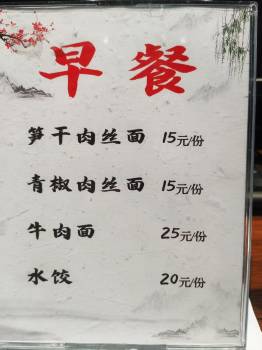 早餐
笋干肉丝面 15元/份
青椒肉丝面 15元/份
牛肉面 25元/份
水饺 20元/份